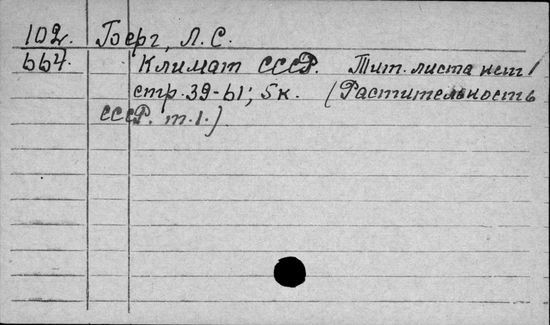 102. Берг, Л. С.
667. Климат СССР. Тит. листа нет!
стр. 39-61; 5 к. (Растительность
СССР. т. 1.)